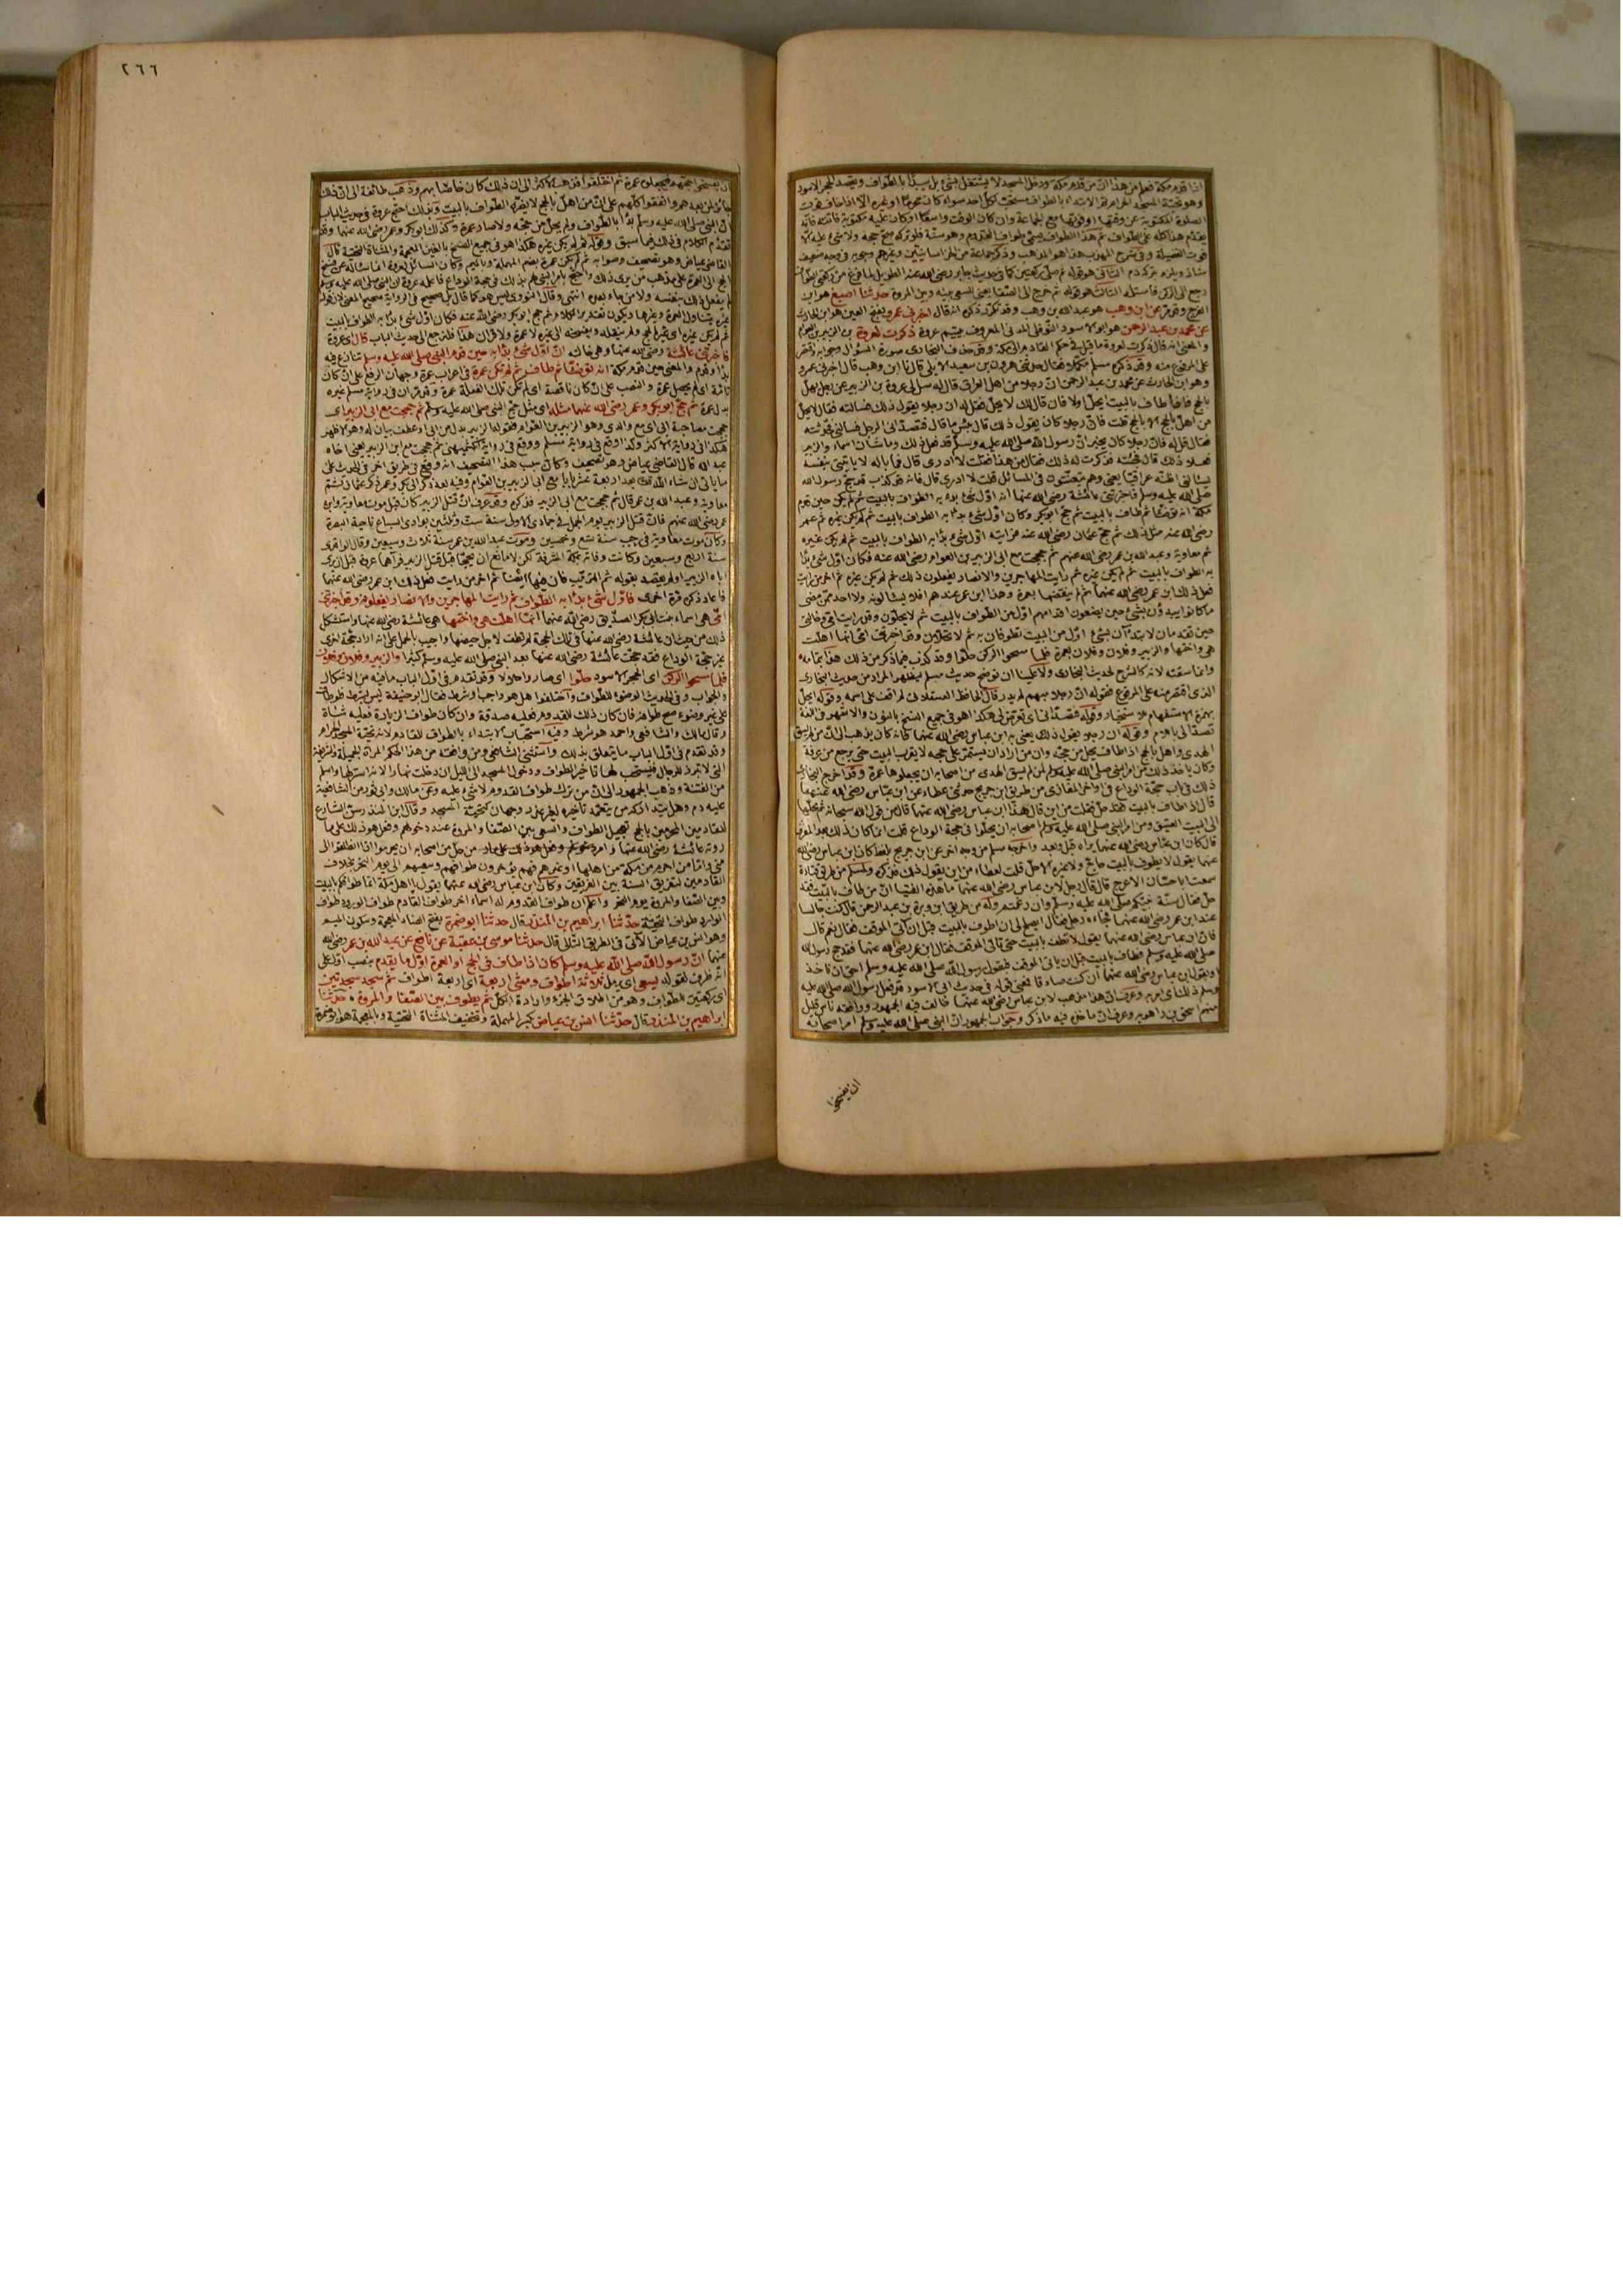 اذا قدم مكة فعلم من هذا ان من قدم مكة ودخل المسجد لا يشتغل بشئ بل يبدأ بالطواف ويقصد الحجر الاسود
وهو تحية المسجد الحرام ثم الابتداء بالطواف مستحب لكل احد سواء كان محرما او غيره الا اذا خاف فوت
الصلوة المكتوبة عن وقتها او فوتها مع الجماعة وان كان الوقت واسعا او كان عليه مكتوبة فائتة فانه
يقدم هذا كله على الطواف ثم هذا الطواف يسمى طواف القدوم وهو سنة فلو تركه صح حجه ولا شئ عليه الا
فوت الفضيلة وفي شرح المهذب هذا هو المذهب وذكر جماعة من الخراسانيين وغيرهم وجوبه في وجه ضعيف
شاذ ويلزم بتركه دم الثاني هو قوله ثم صلى ركعتين كما في حديث جابر رضي الله عنه الطويل
رجع الى الركن فاستلمه الثالث هو قوله ثم خرج الى الصفا يعني للسعي بينه وبين المروة حدثنا اصبغ هو ابن
الفرج عن ابن وهب هو عبد الله بن وهب وقد تكرر ذكره انه قال اخبرني عمرو بفتح العين هو ابن الحارث
عن محمد بن عبد الرحمن هو ابو الاسود النوفلي المدني المعروف بيتيم عروة ذكرت لعروة بن الزبير بن العوام
والمعنى انه قال ذكرت لعروة ما قيل في حكم القادم الى مكة وقد حذف البخاري صورة السؤال وجوابه واقتصر
على المرفوع منه وقد ذكره مسلم مكملا فقال حدثني هرون بن سعيد الايلي قال ثنا ابن وهب قال اخبرني عمرو
وهو ابن الحارث عن محمد بن عبد الرحمن ان رجلا من اهل العراق قال له سل لي عروة بن الزبير عن رجل يهل
بالحج فاذا طاف بالبيت ايحل اولا فان قال لك لا يحل فقل له ان رجلا يقول ذلك فسألته فقال لا يحل
من اهل بالحج الا بالحج قلت فان رجلا كان يقول ذلك قال بئس ما قال فتصداني الرجل فسألني فحدثته
فقال قل له فان رجلا كان يخبر ان رسول الله صلى الله عليه وسلم قد فعل ذلك وما شأن اسماء والزبير
فعلا ذلك قال فجئته فذكرت له ذلك فقال من هذا فقلت لا ادري قال فما باله لا يأتيني بنفسه
يسألني اظنه عراقيا يعني وهم يتعنتون في المسائل قلت لا ادري قال فانه قد كذب قد حج رسول الله
صلى الله عليه وسلم فاخبرتني عائشة رضي الله عنها انه اول شئ بدء به الطواف بالبيت ثم لم يكن حين قدم
مكة انه توضأ ثم طاف بالبيت ثم حج ابو بكر وكان اول شئ بدأ به الطواف بالبيت ثم لم يكن غيره ثم عمر
رضي الله عنه مثل ذلك ثم حج عثمان رضي الله عنه فرأيته اول شئ بدأ به الطواف بالبيت ثم لم يكن غيره
ثم معاوية وعبد الله بن عمر رضي الله عنهم ثم حججت مع ابي الزبير بن العوام رضي الله عنه فكان اول شئ بدأ
به الطواف بالبيت ثم لم يكن غيره ثم رأيت المهاجرين والانصار يفعلون ذلك ثم لم يكن غيره ثم اخر من رأيت
فعل ذلك ابن عمر رضي الله عنهما ثم لم ينقضها بعمرة وهذا ابن عمر عندهم افلا يسألونه ولا احد ممن مضى
ما كانوا يبدؤن بشئ حين يضعون اقدامهم اول من الطواف بالبيت ثم لا يحلون وقد رأيت امي وخالتي
حين تقدمان لا تبدآن بشئ اول من البيت تطوفان به ثم لا تحلان وقد اخبرتني امي انها اهلت
هي واختها والزبير وفلان وفلان بعمرة فلما مسحوا الركن حلوا وقد كذب فيما ذكر من ذلك هذا بتمامه
وانما سقته لانه كالشرح لحديث البخاري
الذي اقتصر منه على المرفوع فقوله ان رجلا مبهم لم يدر قال الحافظ العسقلاني لم اقف على اسمه وقوله ايحل
بهمزة الاستفهام
الهدي واهل بالحج اذا طاف يحل من حجه وان من اراد ان يستمر على حجه لا يقرب البيت حتى يرجع من عرفة
وكان يأخذ ذلك من امر النبي صلى الله عليه وسلم لمن لم يسق الهدي من اصحابه ان يجعلوها عمرة وقد اخرج البخاري
ذلك في باب حجة الوداع في اواخر المغازي من طريق ابن جريج حدثني عطاء عن ابن عباس رضي الله عنهما
قال اذا طاف بالبيت فقد حل فقلت من اين قال هذا ابن عباس رضي الله عنهما قال من قول الله سبحانه ثم محلها
الى البيت العتيق ومن امر النبي صلى الله عليه وسلم اصحابه ان يحلوا في حجة الوداع قلت انما كان ذلك بعد المعرف
قال كان ابن عباس رضي الله عنهما يراه قبل وبعد واخرجه مسلم من وجه اخر عن ابن جريج بلفظ كان ابن عباس رضي الله
عنهما يقول لا يطوف بالبيت حاج ولا غيره الا حل قلت لعطاء من اين يقول ذلك فذكره ولمسلم من طريق قتادة
سمعت ابا حسان الاعرج قال قال رجل لابن عباس رضي الله عنهما ما هذه الفتيا ان من طاف بالبيت فقد
حل فقال سنة نبيكم صلى الله عليه وسلم وان رغمتم وله من طريق ابن وبرة بن عبد الرحمن قال كنت جالسا
عند ابن عمر رضي الله عنهما فجاءه رجل فقال ايصلح لي ان اطوف بالبيت قبل ان آتي الموقف فقال نعم قال
فان ابن عباس رضي الله عنهما يقول لا تطف بالبيت حتى تأتي الموقف فقال ابن عمر رضي الله عنهما فقد حج رسول الله
صلى الله عليه وسلم فطاف بالبيت قبل ان يأتي الموقف فبقول رسول الله صلى الله عليه وسلم احق ان تأخذ
او بقول ابن عباس رضي الله عنهما ان كنت صادقا
وعرف ان هذا مذهب لابن عباس رضي الله عنهما خالف فيه الجمهور ووافقه ناس قليل
منهم اسحق بن راهويه وعرف ان ماخذه فيه ما ذكر وجواب الجمهور ان النبي صلى الله عليه وسلم امر اصحابه
ان يفسخوا
٢٦٦
ان يفسخوا حجهم فيجعلوه عمرة ثم اختلفوا فذهب الاكثر الى ان ذلك كان خاصا بهم وذهب طائفة الى ان ذلك
جائز لمن بعدهم واتفقوا كلهم على ان من اهل بالحج لا يضره الطواف بالبيت وبذلك احتج عروة في حديث الباب
ان النبي صلى الله عليه وسلم بدأ بالطواف ولم يحل من حجه ولا صار عمرة وكذلك ابو بكر وعمر رضي الله عنهما وقد
تقدم الكلام في ذلك فيما سبق وقوله ثم لم يكن غيره هكذا هو في جميع النسخ بالغين المعجمة والمثناة التحتية قال
القاضي عياض وهو تصحيف وصوابه ثم لم تكن عمرة بضم المهملة وبالميم وكان السائل لعروة انما سأله عن فسخ
الحج الى العمرة على مذهب من يرى ذلك واحتج بامر النبي لهم بذلك في حجة الوداع فاعلمه عروة ان النبي صلى الله عليه وسلم
لم يفعل ذلك بنفسه ولا من جاء بعده انتهى وقال النووي ليس هو كما قال بل صحيح في الرواية صحيح المعنى لان قوله
غيره يتناول العمرة وغيرها ويكون تقدير الكلام ثم حج ابو بكر رضي الله عنه فكان اول شئ بدأ به الطواف بالبيت
ثم لم يكن غيره اي غير الحج ولم ينقله ولم يفسخه الى غيره لا عمرة ولا قران هذا فلنرجع الى حديث الباب قال اي عروة
فاخبرتني عائشة رضي الله عنها وهي خالته ان اول شئ بدأ به حين قدم النبي صلى الله عليه وسلم تنازع فيه
بدأ وقدم والمعنى حين قدم مكة انه توضأ ثم طاف ثم لم تكن عمرة في اعراب عمرة وجهان الرفع على ان كان
تامة اي لم يحصل عمرة والنصب على ان كان ناقصة اي لم تكن تلك الفعلة عمرة وقد مر ان في رواية مسلم غيره
بدل عمرة ثم حج ابو بكر وعمر رضي الله عنهما مثله اي مثل حج النبي صلى الله عليه وسلم ثم حججت مع ابي الزبير اي
حججت مصاحبة الى ابي مع والدي وهو الزبير بن العوام فقوله الزبير بدل من ابي او عطف بيان له وهو الاظهر
هكذا في رواية الاكثر وكذا وقع في رواية مسلم ووقع في رواية الكشميهني ثم حججت مع ابن الزبير يعني اخاه
عبد الله قال القاضي عياض وهو تصحيف وكان سبب هذا التصحيف انه وقع في طريق اخر في الحديث على
ما يأتي ان شاء الله تعالى بعد اربعة عشر بابا مع ابي الزبير بن العوام وفيه بعد ذكر ابي بكر وعمر ذكر عثمان ثم
معاوية وعبد الله بن عمر قال ثم حججت مع ابي الزبير فذكره وقد عرف ان قتل الزبير كان قبل موت معاوية وابن
عمر رضي الله عنهم فان قتل الزبير يوم الجمل في جمادى الاولى سنة ست وثلثين بوادي السباع ناحية البصرة
وكان موت معاوية في رجب سنة تسع وخمسين وموت عبد الله بن عمر سنة ثلاث وسبعين وقال الواقدي
سنة اربع وسبعين وكانت وفاته بمكة المشرفة لكن لا مانع ان يحجا قبل قتل الزبير فرآهما عروة قبل ان يرى
اباه الزبير او لم يقصد بقوله ثم الترتيب فان فيها ايضا ثم اخر من رأيت فعل ذلك ابن عمر رضي الله عنهما
فاعاد ذكره مرة اخرى فاول شئ بدأ به الطواف ثم رأيت المهاجرين والانصار يفعلونه وقد اخبرتني
امي هي اسماء بنت ابي بكر الصديق رضي الله عنهما انها اهلت هي واختها هي عائشة رضي الله عنها واستشكل
ذلك من حيث ان عائشة رضي الله عنها في تلك الحجة لم تطف لاجل حيضها واجيب بالحمل على انه اراد حجة اخرى
غير حجة الوداع فقد حجت عائشة رضي الله عنها بعد النبي صلى الله عليه وسلم كثيرا والزبير وفلان وفلان
فلما مسحوا الركن اي الحجر الاسود حلوا اي صاروا حلالا وقد تقدم في اول الباب ما فيه من الاشكال
والجواب وفي الحديث الوضوء للطواف واختلفوا هل هو واجب او شرط فقال ابو حنيفة ليس بشرط فلو طاف
على غير وضوء صح طوافه فان كان ذلك للقدوم فعليه صدقة وان كان طواف الزيارة فعليه شاة
وقال مالك والشافعي واحمد هو شرط وفيه استحباب الابتداء بالطواف للقادم لانه تحية المسجد الحرام
وقد تقدم في اول الباب ما يتعلق بذلك واستثنى الشافعي ومن وافقه من هذا الحكم المرأة الجميلة والشريفة
التي لا تبرز للرجال فيستحب لها تأخير الطواف ودخول المسجد الى الليل ان دخلت نهارا لانه استر لها واسلم
من الفتنة وذهب الجمهور الى ان من ترك طواف القدوم لا شئ عليه وعن مالك وابي ثور من الشافعية
عليه دم وهل يتداركه من يتعمد تأخيره لغير عذر وجهان كتحية المسجد وقال ابن المنذر سن الشارع
للقادمين المحرمين بالحج تعجيل الطواف والسعي بين الصفا والمروة عند دخولهم وفعل هو ذلك على ما
روته عائشة رضي الله عنها وامر من حل من اصحابه ان يحرموا اذا انطلقوا الى
منى واما من احرم من مكة من اهلها او غيرهم فهم يؤخرون طوافهم وسعيهم الى يوم النحر بخلاف
القادمين لتفريق السنة بين الفريقين وكان ابن عباس رضي الله عنهما يقول يا اهل مكة انما طوافكم بالبيت
وبين الصفا والمروة يوم النحر واعلم ان طواف القدوم له اسماء اخر طواف القادم طواف الورود طواف
الوارد طواف التحية حدثنا ابراهيم بن المنذر قال حدثنا ابو ضمرة بفتح الضاد المعجمة وسكون الميم
وهو انس بن عياض الآتي في الطريق الثاني قال حدثنا موسى بن عقبة عن نافع عن عبد الله بن عمر رضي الله
عنهما ان رسول الله صلى الله عليه وسلم كان اذا طاف في الحج او العمرة اول ما يقدم بنصب اول على
انه ظرف لقوله يسعى اي يرمل ثلاثة اطواف ومشى اربعة اي اربعة اطواف ثم سجد سجدتين
اي ركعتين للطواف وهو من اطلاق الجزء وارادة الكل ثم يطوف بين الصفا والمروة حدثنا
ابراهيم بن المنذر قال حدثنا انس بن عياض بكسر المهملة وتخفيف المثناة التحتية وبالمعجمة هو ابو ضمرة